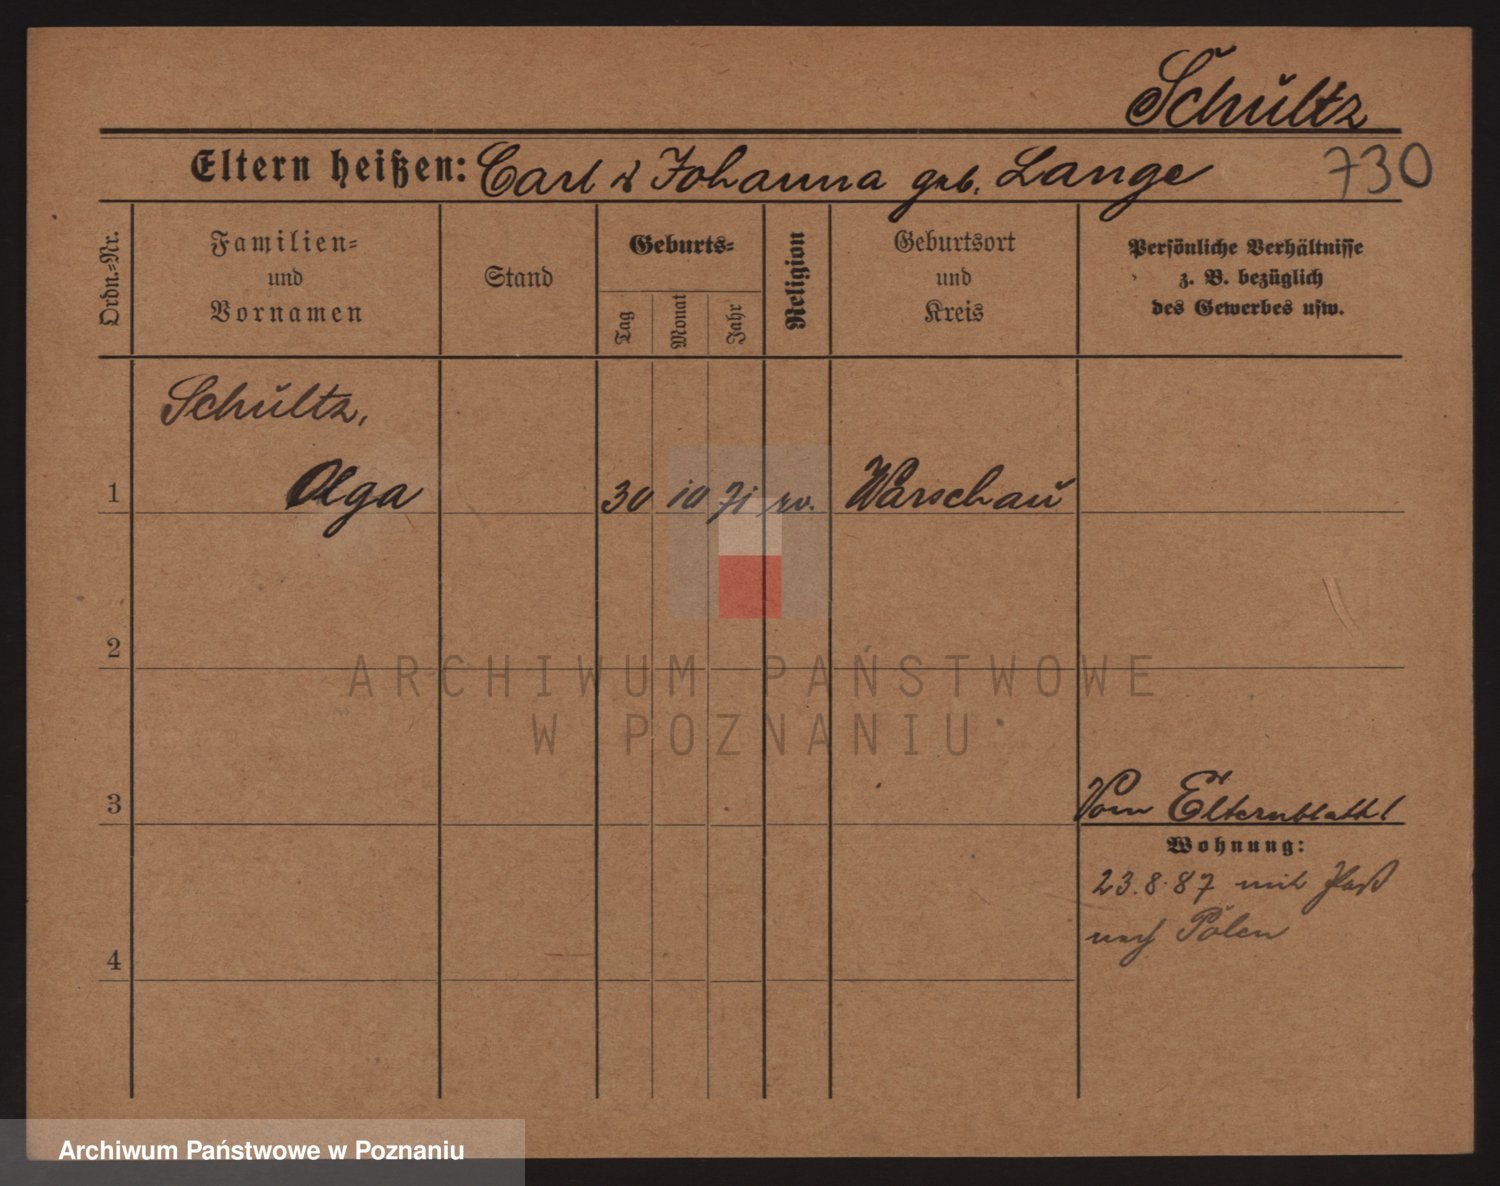 Schultz
Eltern heißen: Carl u Johanna geb. Lange 730
Ordn.-Nr.
Familien-
und
Vornamen
Stand
Geburts-
Tag
Monat
Jahr
Religion
Geburtsort
und
Kreis
Persönliche Verhältnisse
z. B. bezüglich
des Gewerbes usw.
Schultz,
1 Olga 30 10 71 ev. Warschau
2
ARCHIWUM PAŃSTWOWE
W POZNANIU
3 Vom Elternblatt!
Wohnung:
23.8.87 mit Paß
nach Polen
4
Archiwum Państwowe w Poznaniu